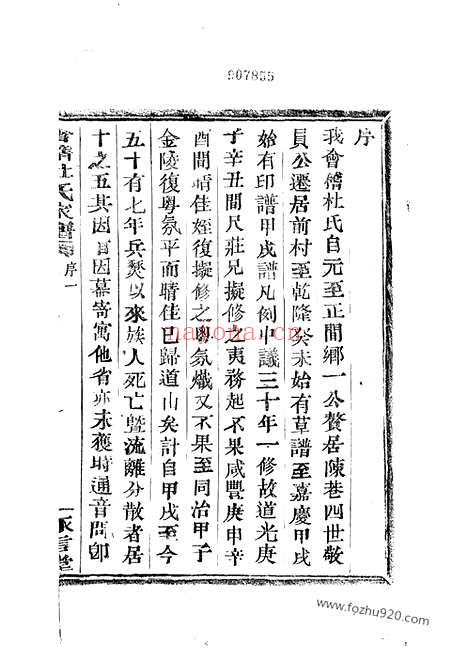 907855
序
我會稽杜氏自元至正間鄉一公贅居陳巷四世敬
員公遷居前村至乾隆癸未始有草譜至嘉慶甲戌
始有印譜甲戌譜凡例中議三十年一修故道光庚
子辛丑間尺莊兄擬修之夷務起不果咸豐庚申辛
酉間晴佳姪復擬修之粵氛熾又不果至同治甲子
金陵復粵氛平而晴佳已歸道山矣計自甲戌至今
五十有七年兵燹以來族人死亡暨流離分散者居
十之五其因官因幕寄寓他省亦未獲時通音問卽
會稽杜氏家譜
序一
nayona.cn
www.fozhu920.com